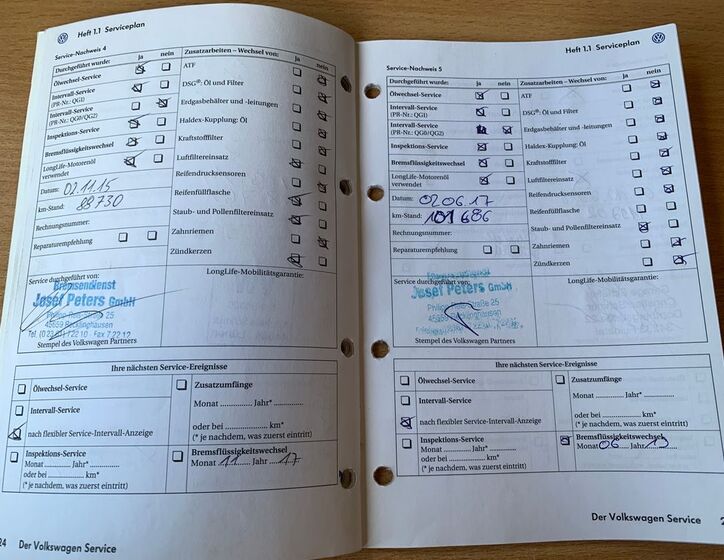 Heft 1.1 Serviceplan
Service-Nachweis 4
Durchgeführt wurde: ja nein
Ölwechsel-Service
Intervall-Service
(PR-Nr.: QGI)
Intervall-Service
(PR-Nr.: QG0/QG2)
Inspektions-Service
Bremsflüssigkeitswechsel
LongLife-Motorenöl
verwendet
Datum: 02.11.15
km-Stand: 88730
Rechnungsnummer:
Reparaturempfehlung
Zusatzarbeiten – Wechsel von: ja nein
ATF
DSG®: Öl und Filter
Erdgasbehälter und -leitungen
Haldex-Kupplung: Öl
Kraftstofffilter
Luftfiltereinsatz
Reifendrucksensoren
Reifenfüllflasche
Staub- und Pollenfiltereinsatz
Zahnriemen
Zündkerzen
Service durchgeführt von:
Bremsendienst
Josef Peters GmbH
45659 Recklinghausen
Stempel des Volkswagen Partners
LongLife-Mobilitätsgarantie:
Ihre nächsten Service-Ereignisse
Ölwechsel-Service
Intervall-Service
nach flexibler Service-Intervall-Anzeige
Inspektions-Service
Monat ............ Jahr*............
oder bei ............ km*
(* je nachdem, was zuerst eintritt)
Zusatzumfänge
Monat ............ Jahr*............
oder bei ............ km*
(* je nachdem, was zuerst eintritt)
Bremsflüssigkeitswechsel
Monat 11 Jahr 17
24 Der Volkswagen Service
Heft 1.1 Serviceplan
Service-Nachweis 5
Durchgeführt wurde: ja nein
Ölwechsel-Service
Intervall-Service
(PR-Nr.: QGI)
Intervall-Service
(PR-Nr.: QG0/QG2)
Inspektions-Service
Bremsflüssigkeitswechsel
LongLife-Motorenöl
verwendet
Datum: 02.06.17
km-Stand: 101686
Rechnungsnummer:
Reparaturempfehlung
Zusatzarbeiten – Wechsel von: ja nein
ATF
DSG®: Öl und Filter
Erdgasbehälter und -leitungen
Haldex-Kupplung: Öl
Kraftstofffilter
Luftfiltereinsatz
Reifendrucksensoren
Reifenfüllflasche
Staub- und Pollenfiltereinsatz
Zahnriemen
Zündkerzen
Service durchgeführt von:
Josef Peters GmbH
45659 Recklinghausen
Stempel des Volkswagen Partners
LongLife-Mobilitätsgarantie:
Ihre nächsten Service-Ereignisse
Ölwechsel-Service
Intervall-Service
nach flexibler Service-Intervall-Anzeige
Inspektions-Service
Monat ............ Jahr*............
oder bei ............ km*
(* je nachdem, was zuerst eintritt)
Zusatzumfänge
Monat ............ Jahr*............
oder bei ............ km*
(* je nachdem, was zuerst eintritt)
Bremsflüssigkeitswechsel
Monat 06 Jahr 19
Der Volkswagen Service